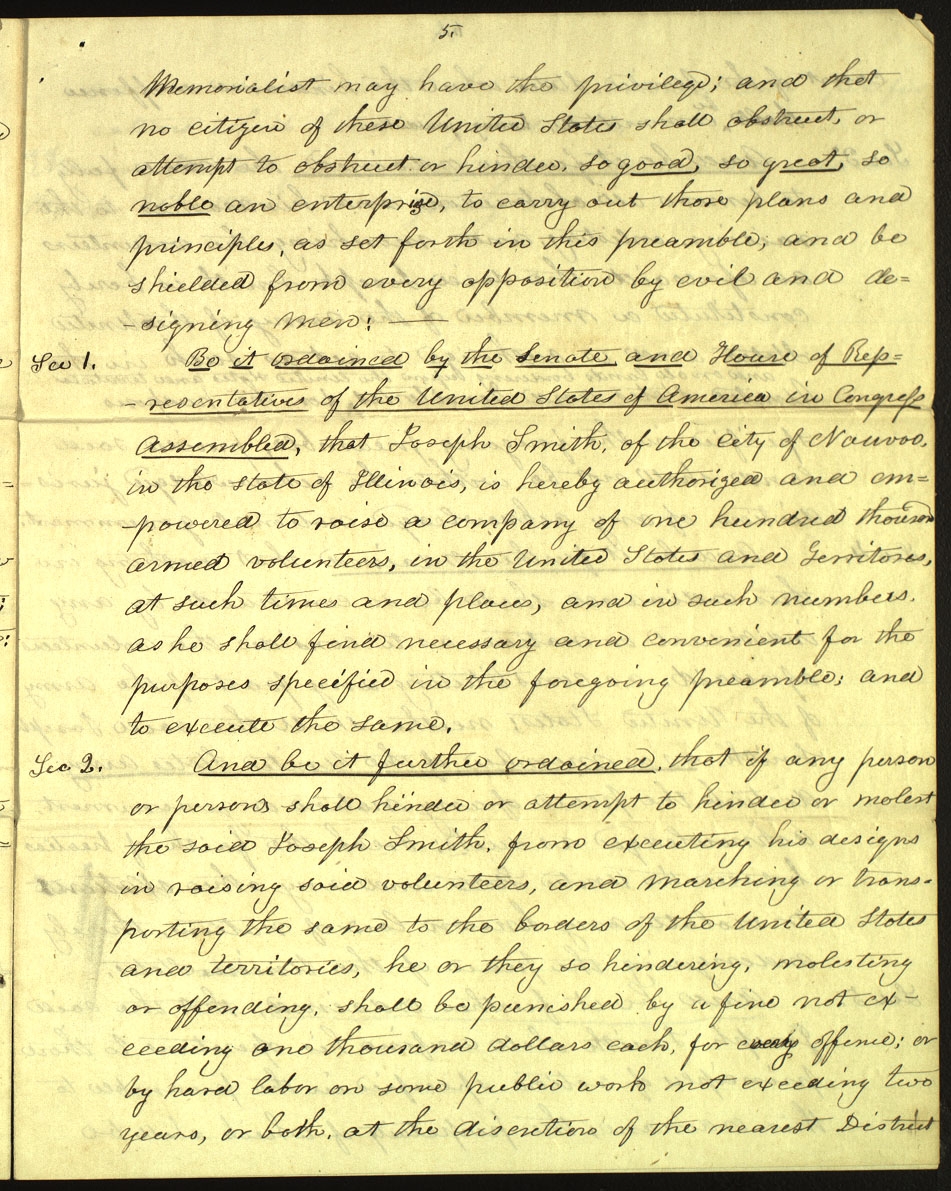 5.
Memorialist may have the privilege; and that
no citizen of these United States shall obstruct, or
attempt to obstruct or hinder, so good, so great, so
noble an enterprise, to carry out those plans and
principles, as set forth in this preamble, and be
shielded from every opposition by evil and de=
-signing men: —
Sec 1. Be it ordained by the Senate and House of Rep=
-resentatives of the United States of America in Congress
Assembled, that Joseph Smith, of the City of Nauvoo,
in the State of Illinois, is hereby authorized and em=
-powered to raise a company of one hundred thousand
armed volunteers, in the United States and Territories,
at such times and places, and in such numbers,
as he shall find necessary and convenient for the
purposes specified in the foregoing preamble; and
to execute the same.
Sec 2. And be it further ordained, that if any person
or persons shall hinder or attempt to hinder or molest
the said Joseph Smith, from executing his designs
in raising said volunteers, and marching or trans-
porting the same to the borders of the United States
and territories, he or they so hindering, molesting
or offending, shall be punished by a fine not ex-
ceeding one thousand dollars each, for every offence; or
by hard labor on some public work not exceeding two
years, or both, at the discretion of the nearest District